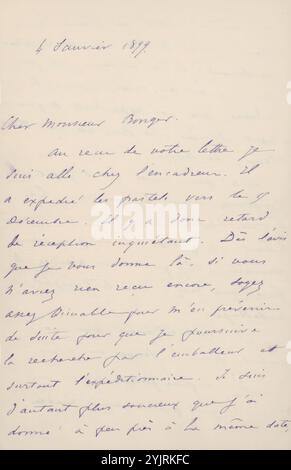 4 Janvier 1899.
Cher Monsieur Bonger.
Au reçu de votre lettre je
suis allé chez l'encadreur. Il
a expédié les pastels vers le 15
Décembre. Il y a donc retard
de réception inquiétant. Dès l'avis
que je vous donne là, si vous
n'aviez rien reçu encore, soyez
assez aimable pour m'en prévenir
de suite pour que je poursuive
la recherche par l'emballeur et
surtout l'expéditionnaire. Je suis
d'autant plus soucieux que j'ai
donné à peu près à la même date,
alamy
Image ID: 2YJRKFC
www.alamy.com